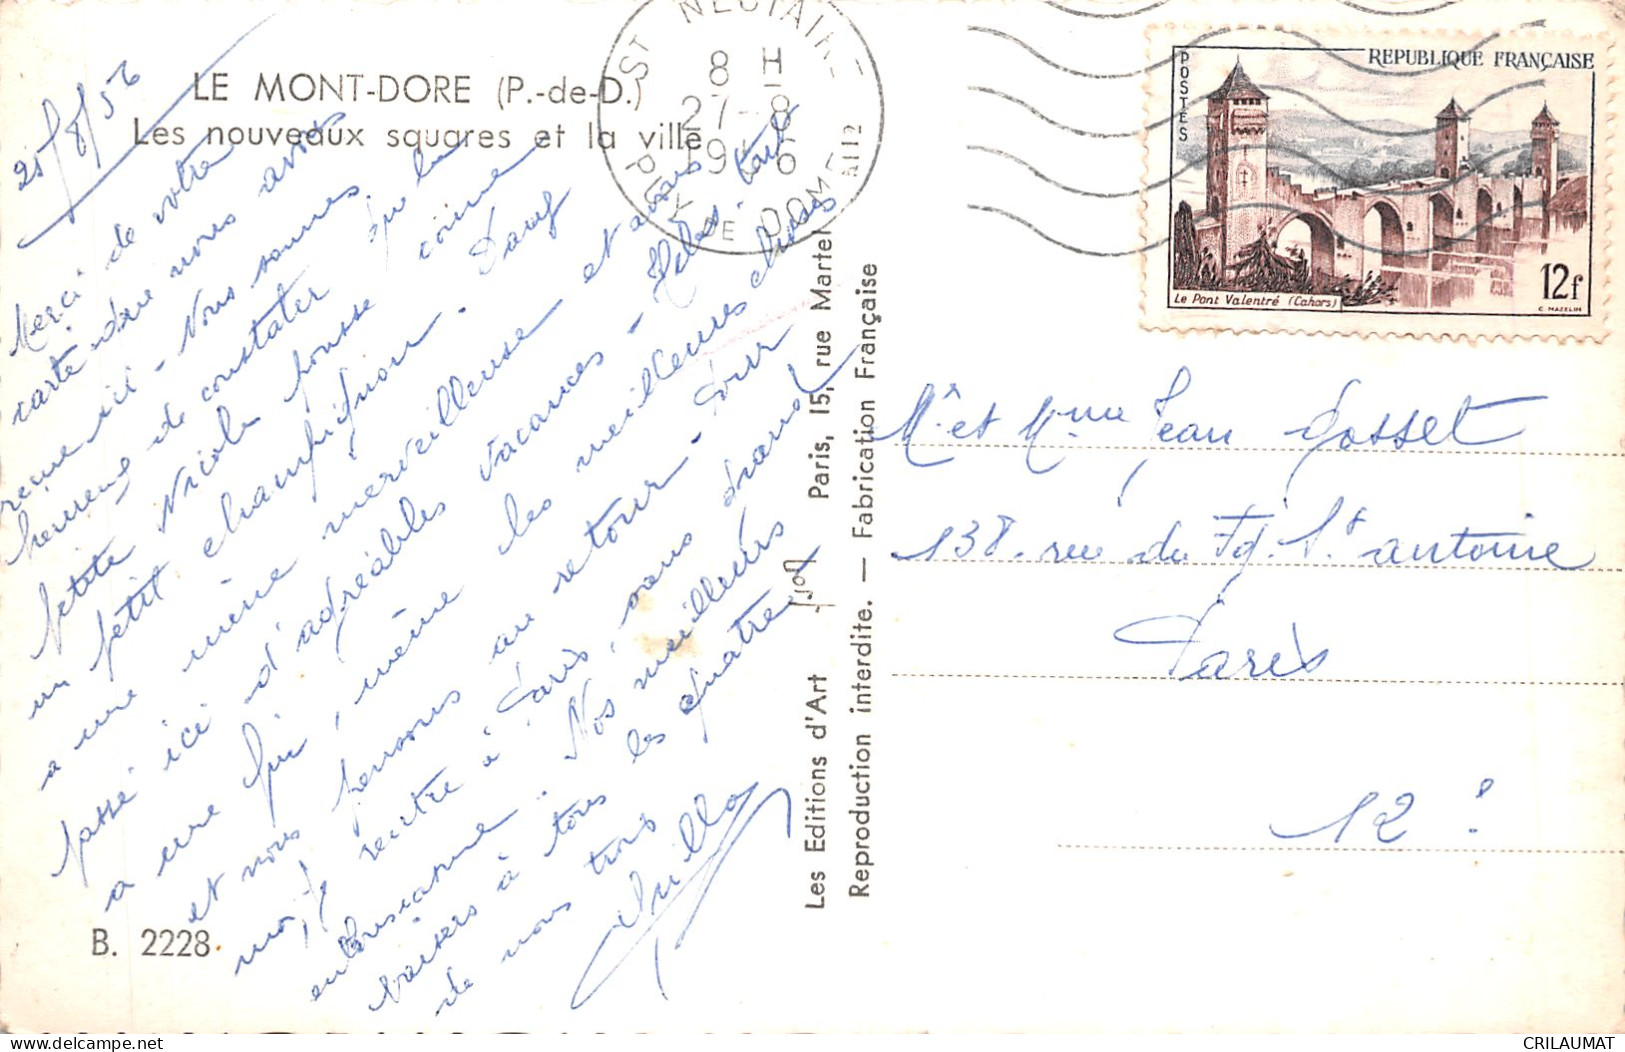 LE MONT-DORE (P.-de-D.)
Les nouveaux squares et la ville
25/8/56
Merci de votre
carte que nous avons
reçue ici - Nous sommes
heureux de constater que la
petite Nicole pousse comme
un petit champignon. Dany
a une mine merveilleuse et aura
passé ici d'agréables vacances - Hélas. tout
a une fin, même les meilleures choses
et nous pensons au retour - Pour
moi, je rentre à Paris, sans grand
enthousiasme.. Nos meilleurs
baisers à tous les quatre
de nous trois
B. 2228
Les Editions d'Art YVON Paris, 15, rue Martel
Reproduction interdite. — Fabrication Française
ST NECTAIRE
8 H
27-8
1956
PUY DE DOME
A112
POSTES
REPUBLIQUE FRANÇAISE
Le Pont Valentré (Cahors)
12f
C. MAZELIN
Mr et Mme Jean Gosset
138. rue du Fg. St antoine
Paris
12e
CRILAUMAT